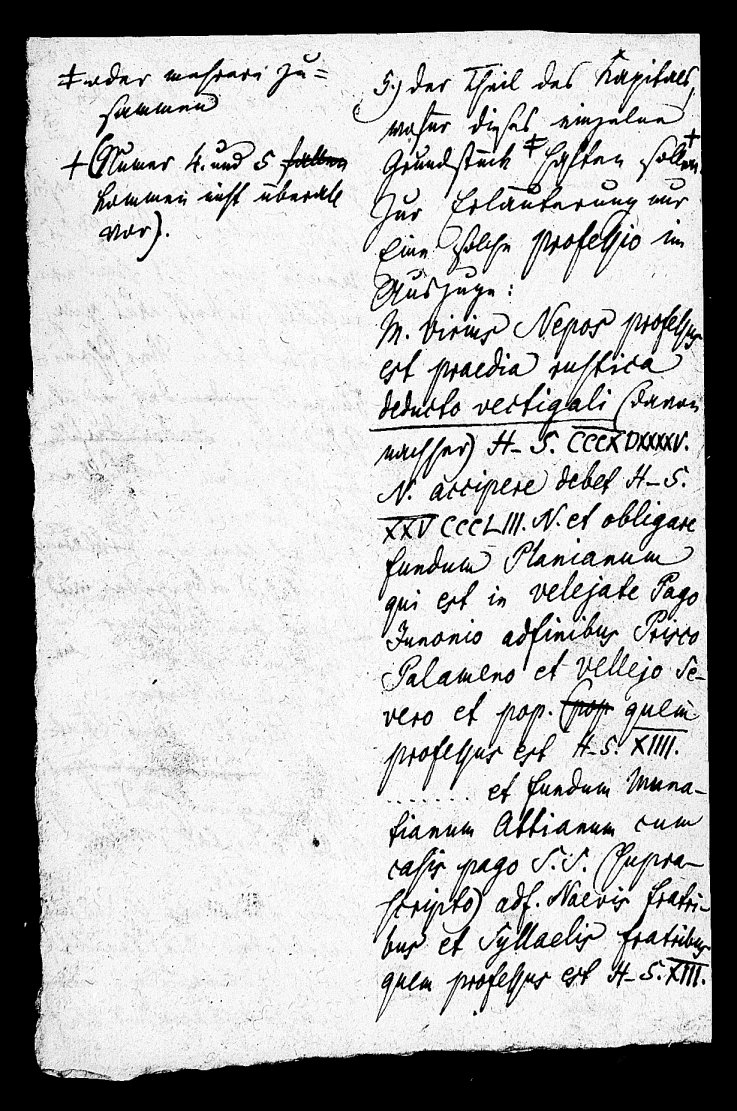 ‡ oder mehrere zu=
sammen
+ (Numer 4. und 5 fallen
kommen nicht überall
vor).
5.) der Theil des Kapitals,
wofür dieses einzelne
Grundstück ‡ haften sollen. +
Zur Erläuterung nur
Eine solche professio im
Auszuge:
M. Virius Nepos professus
est praedia rustica
deducto vectigali (davon
nachher) H-S. CCCXDXXXXV.
N. accipere debet H-S.
XXV CCCLIII. N. et obligare
fundum Planianum
qui est in Velejate Pago
Junonio adfinibus Prisco
Palameno et Vellejo Se-
vero et pop. (pop quem
professus est H-S. XIIII.
......... et fundum Muna-
tianum Attianum cum
casis pago S.S. (supra-
scripto) adf. Naevis fratri-
bus et Syllaelis fratribus
quem professus est H-S. XIII.